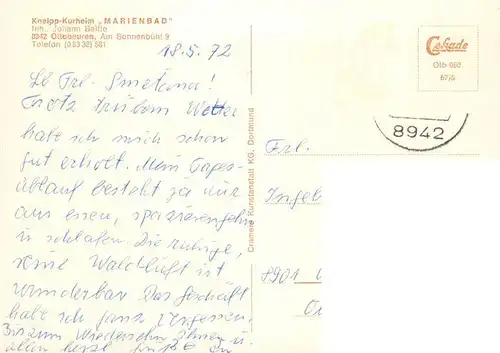 Kneipp-Kurheim „MARIENBAD"
Inh. Johann
8942 Ottobeuren, Am Sonnenbühl 9
Telefon (0 83 32) 581
18.5.72
Lb Frl. Smetana!
Trotz trübem Wetter
habe ich mich schon
gut erholt. Mein Tages-
ablauf besteht ja nur
aus essen, spazierengehn
u schlafen. Die ruhige,
reine Waldluft ist
wunderbar. Das Geschäft
habe ich ganz vergessen.
Bis zum Wiedersehn Ihnen u.
allen herzl. Grüße
Cramers Kunstanstalt KG. Dortmund
Cekade
Otb 960
8942
Frl.
Ingeb
8901